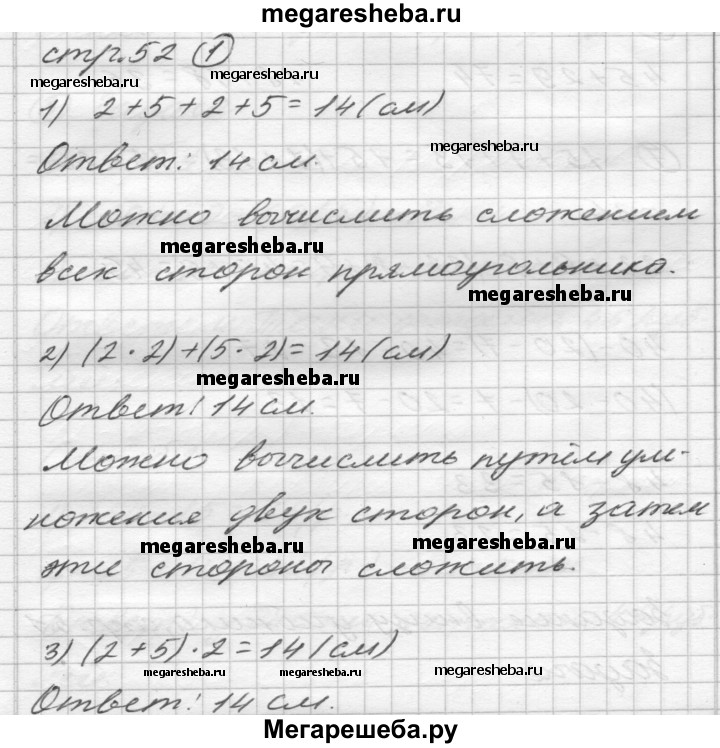 megaresheba.ru
стр.52 1
megaresheba.ru megaresheba.ru
1) 2+5+2+5=14(см)
megaresheba.ru
Ответ: 14 см.
Можно вычислить сложением
megaresheba.ru
всех сторон прямоугольника.
megaresheba.ru
2) (2·2)+(5·2)=14(см)
megaresheba.ru
Ответ: 14 см.
Можно вычислить путём ум-
ножения двух сторон, а затем
megaresheba.ru megaresheba.ru
эти стороны сложить.
3) (2+5)·2=14(см)
megaresheba.ru megaresheba.ru megaresheba.ru
Ответ: 14 см.
Мегарешеба.ру